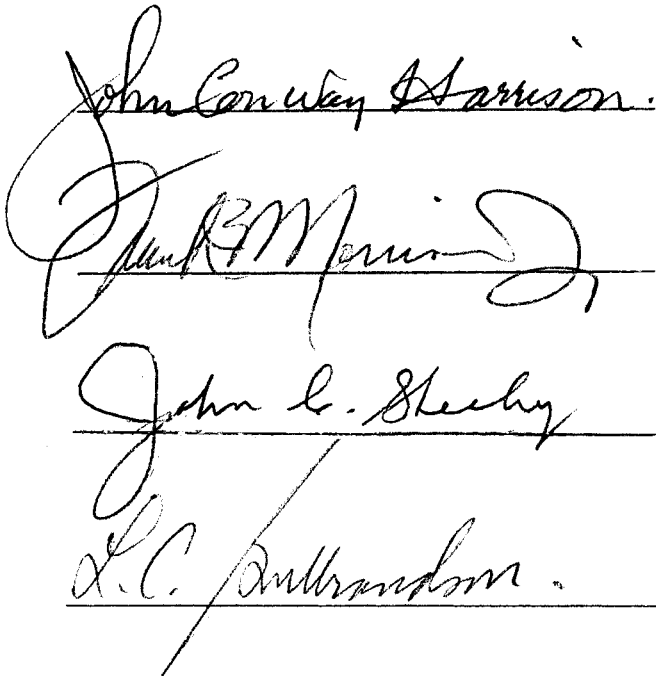 John Conway Harrison.
Frank B Morrison Jr
John C. Sheehy
L.C. Gulbrandson.